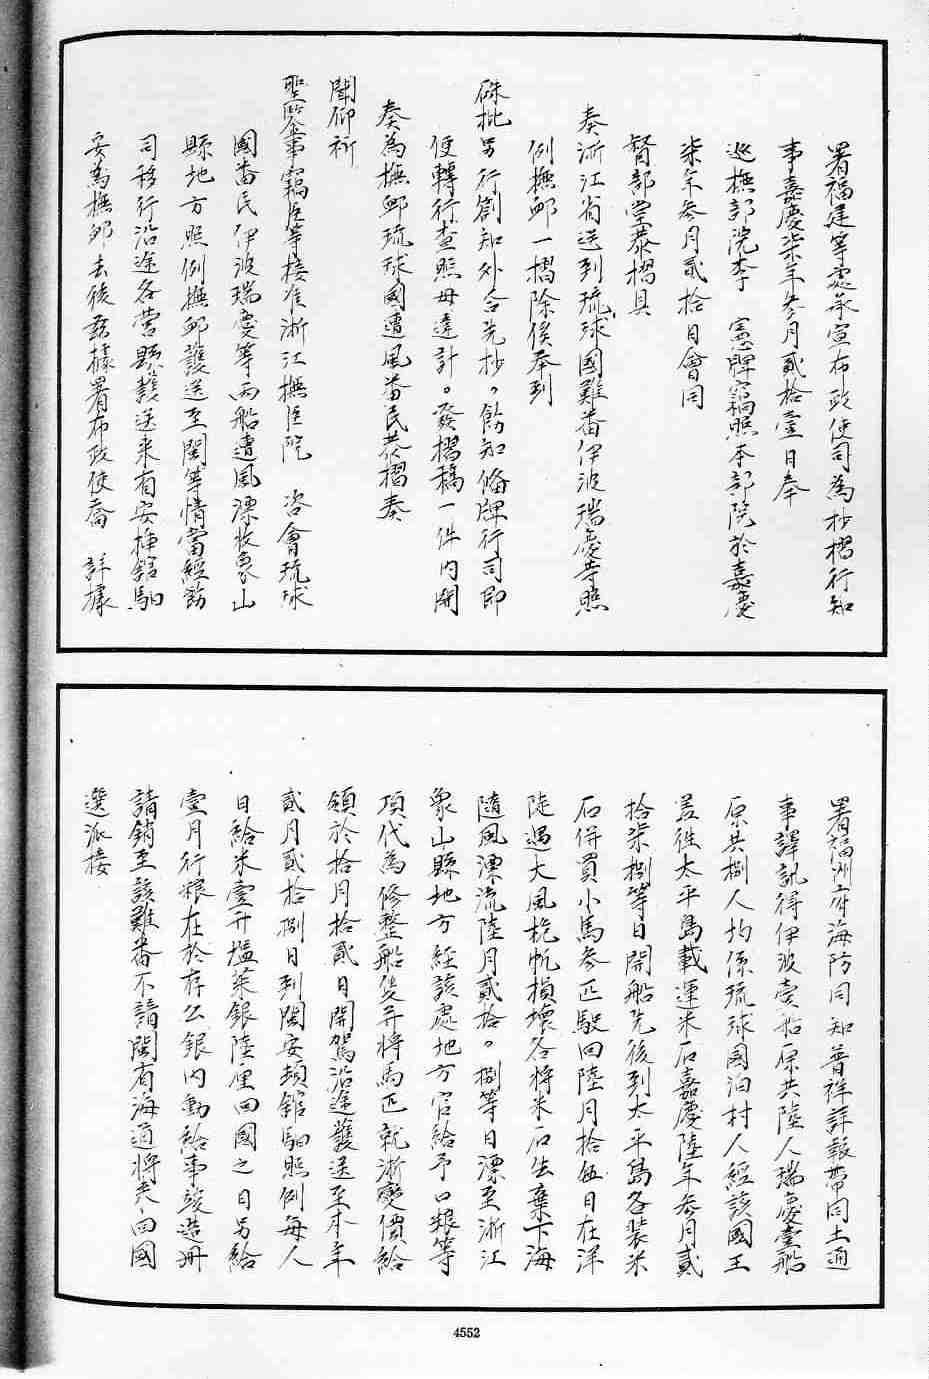 署福建等處承宣布政使司為抄摺行知
事嘉慶柒年叁月貳拾壹日奉
巡撫部院李　憲牌竊照本部院於嘉慶
柒年叁月貳拾日會同
督部堂恭摺具
奏浙江省送到琉球國難番伊波瑞慶等照
例撫卹一摺除俟奉到
硃批另行劄知外合先抄。飭知備牌行司即
便轉行查照毋違計。發摺稿一件內開
奏為撫卹琉球國遭風番民恭摺奏
聞仰祈
聖鑒事竊臣等接准浙江撫臣阮　咨會琉球
國番民伊波瑞慶等兩船遭風漂收象山
縣地方照例撫卹護送至閩等情當經飭
司移行沿途各營縣護送來省安揷館馹
妥為撫卹去後茲據署布政使喬　詳據
署福州府海防同知普祥詳報帶同土通
事譯訊得伊波壹船原共陸人瑞慶壹船
原共捌人均係琉球國泊村人經該國王
蓋徃太平島載運米石嘉慶陸年叁月貳
拾柒捌等日開船先後到太平島各裝米
石併買小馬叁匹駛回陸月拾伍日在洋
陡遇大風桅帆損壞各將米石丟棄下海
隨風漂流陸月貳拾。捌等日漂至浙江
象山縣地方經該處地方官給予口粮等
項代為修整船隻并將馬匹就浙變價給
領於拾月拾貳日開駕沿途護送至本年
貳月貳拾捌日到閩安頓館馹照例每人
日給米壹升塩菜銀陸厘回國之日另給
壹月行粮在於存公銀內動給事竣造冊
請銷至該難番不諳閩省海道將來回國
選派接